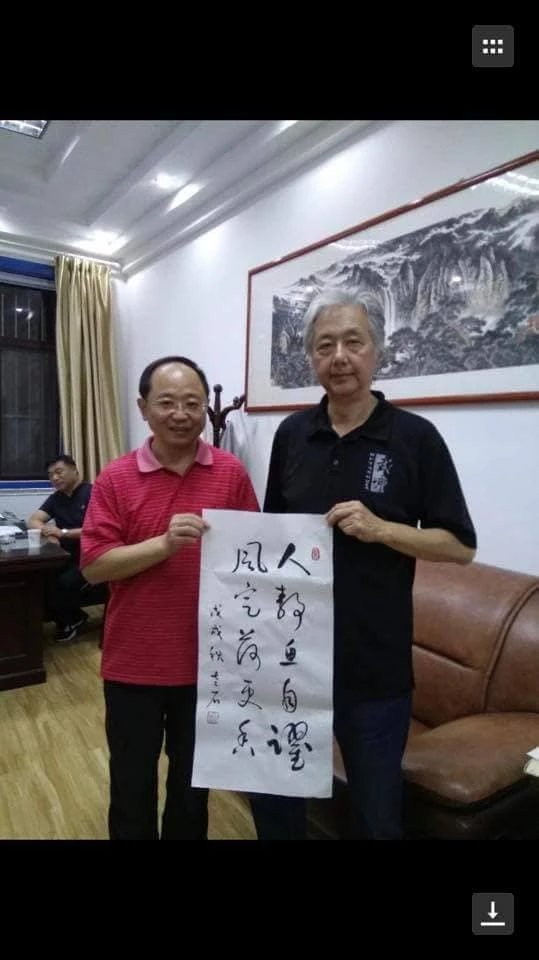 人静鱼自躍
风定荷更香
戊戌秋